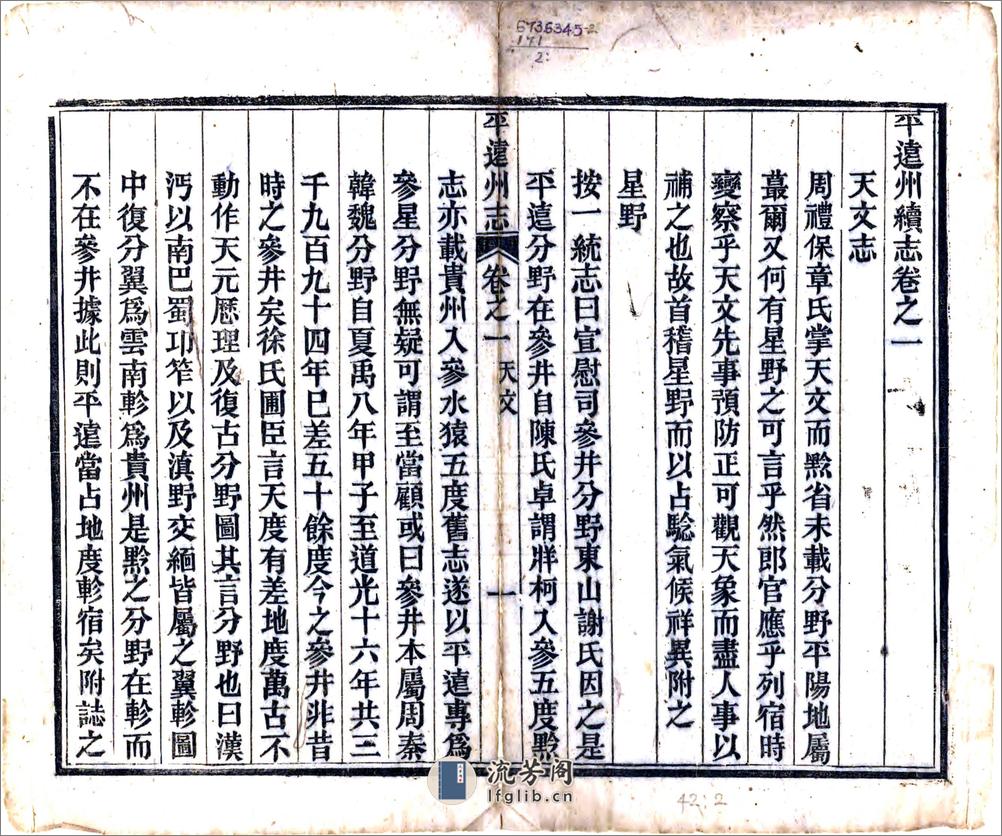 6736345-2
171
2:
平遠州續志卷之一
天文志
周禮保章氏掌天文而黔省未載分野平陽地屬
蕞爾又何有星野之可言乎然郎官應乎列宿時
變察乎天文先事預防正可觀天象而盡人事以
補之也故首稽星野而以占騐氣候祥異附之
星野
按一統志曰宣慰司參井分野東山謝氏因之是
平遠分野在參井自陳氏卓謂牂柯入參五度黔
平遠州志
卷之一
天文
一
志亦載貴州入參水猿五度舊志遂以平遠專為
參星分野無疑可謂至當顧或曰參井本屬周秦
韓魏分野自夏禹八年甲子至道光十六年共三
千九百九十四年巳差五十餘度今之參井非昔
時之參井矣徐氏圃臣言天度有差地度萬古不
動作天元厯理及復古分野圖其言分野也曰漢
沔以南巴蜀卭笮以及滇野交緬皆屬之翼軫圖
中復分翼為雲南軫為貴州是黔之分野在軫而
不在參井據此則平遠當占地度軫宿矣附誌之
流芳阁
lfglib.cn
42:2